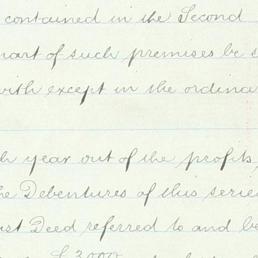 contained in the Second
part of such premises be s
with except in the ordina
h year out of the profits,
he Debentures of this serie
ust Deed referred to and be
£3,000